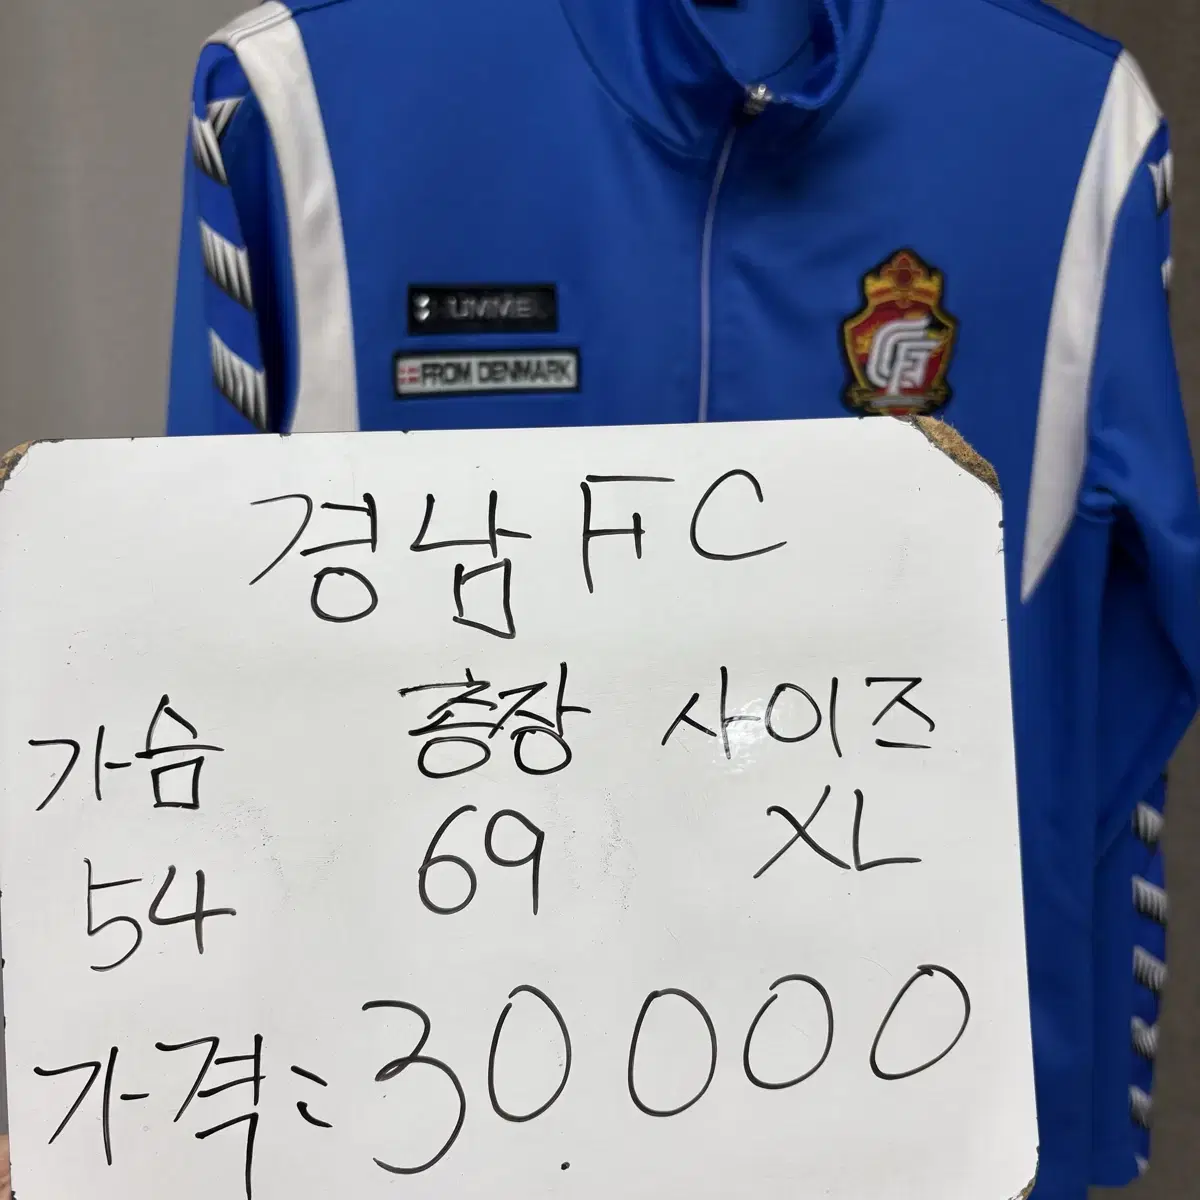 UMMEL
FROM DENMARK
GF
경남 FC
가슴 총장 사이즈
54 69 XL
가격: 30.000